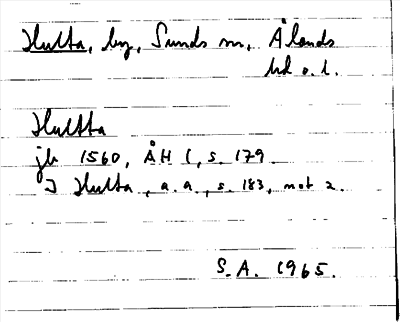 Hulta, by, Sunds sn, Ålands
hd o. l.
Hultta
jb 1560, ÅH 1, s. 179
I Hulta, a.a., s. 183, not 2.
S.A. 1965.